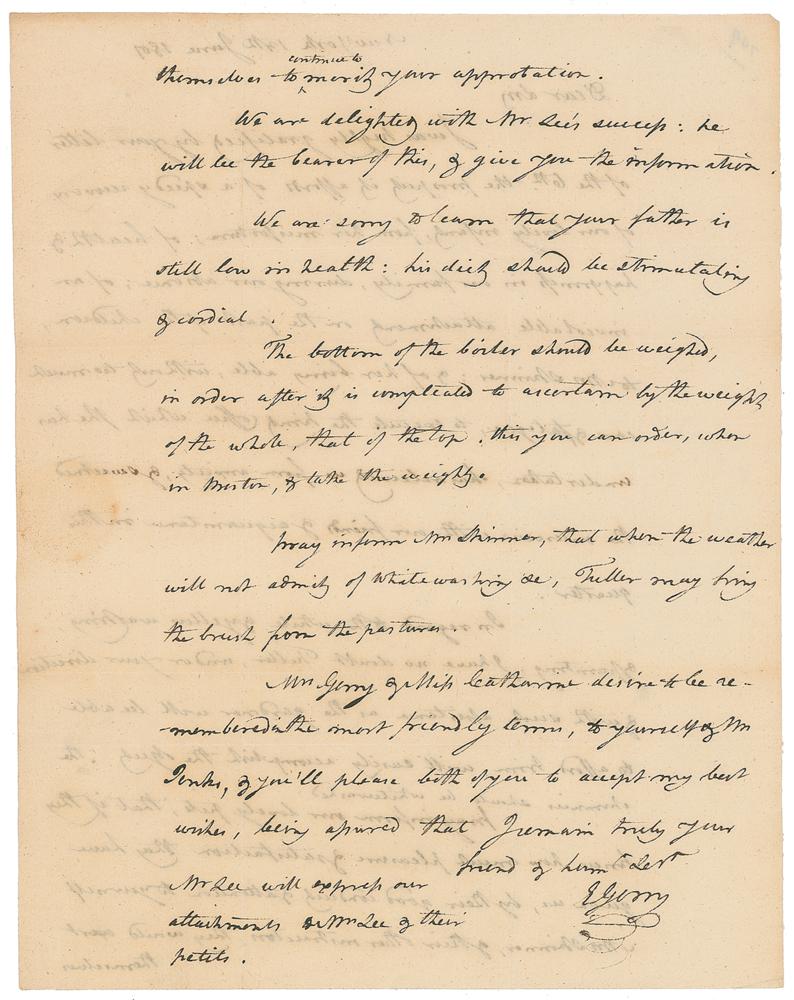 continue to
themselves to merit your approbation.
We are delighted with Mr Lee's success: he
will be the bearer of this, & give you the information.
We are sorry to learn that your father is
still low in health: his diet should be stimulating
& cordial.
The bottom of the boiler should be weighed,
in order after it is compleated to ascertain by the weight
of the whole, that of the top. this you can order, when
in Boston, & take the weight.
pray inform Mr Skinner, that when the weather
will not admit of White washing &c, Fuller may bring
the brush from the pastures.
Mrs Gerry & Miss Catharine desire to be re-
membered in the most friendly terms, to yourself & Mrs
Jenks, & you'll please both of you to accept my best
wishes, being assured that I remain truly your
friend & humle Servt
E Gerry
Mr Lee will express our
attachments to Mrs Lee & their
petits.